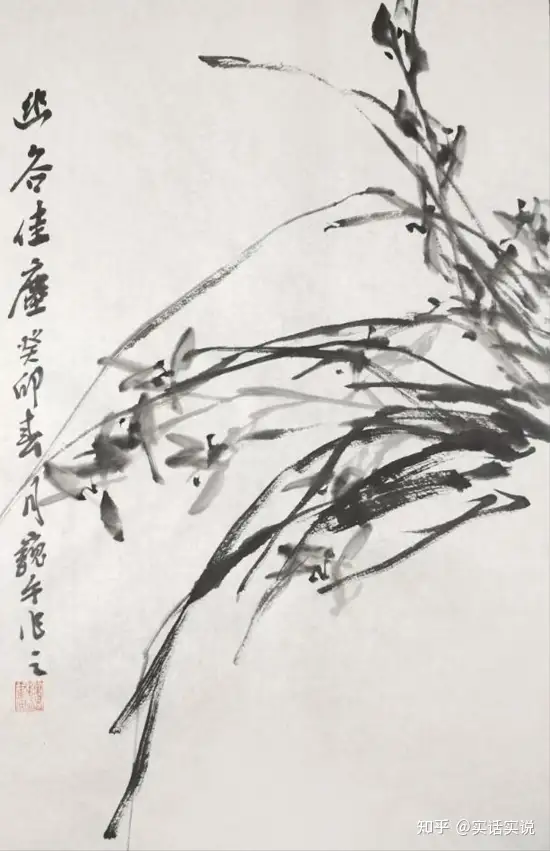 幽谷佳癸卯春月魏作之
知乎 @实话实说